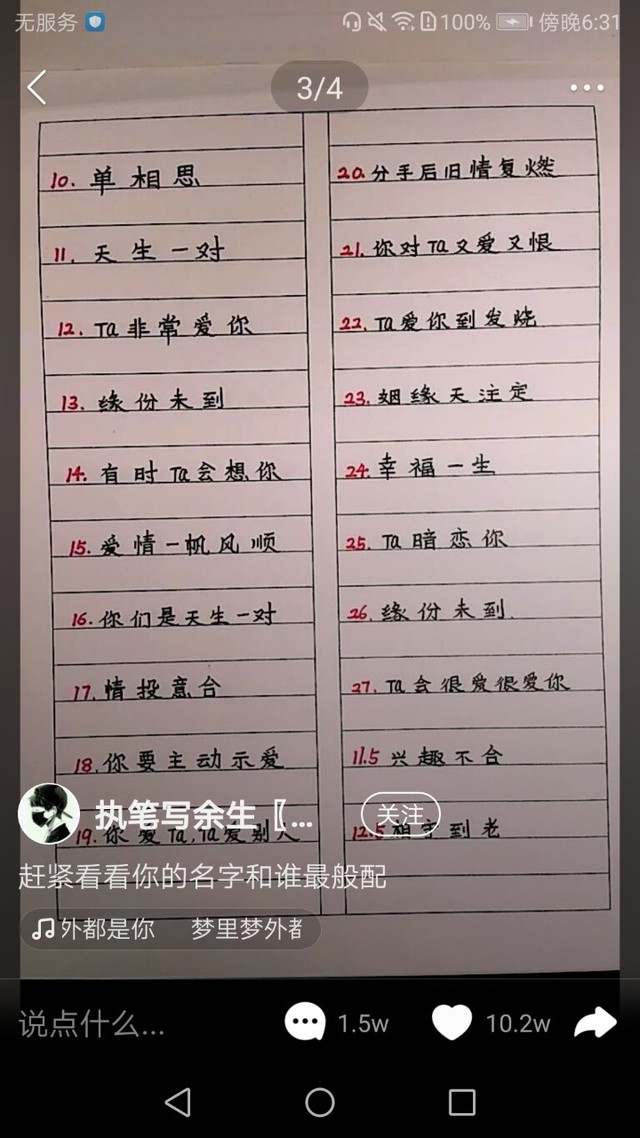 无服务
100% 傍晚6:31
3/4
10. 单相思
11. 天生一对
12. Ta非常爱你
13. 缘份未到
14. 有时Ta会想你
15. 爱情一帆风顺
16. 你们是天生一对
17. 情投意合
18. 你要主动示爱
19. 你爱Ta,Ta爱别人
20. 分手后旧情复燃
21. 你对Ta又爱又恨
22. Ta爱你到发烧
23. 姻缘天注定
24. 幸福一生
25. Ta暗恋你
26. 缘份未到.
27. Ta会很爱很爱你
11.5 兴趣不合
12.5 相守到老
执笔写余生〖...
关注
赶紧看看你的名字和谁最般配
外都是你 梦里梦外者
说点什么...
1.5w
10.2w